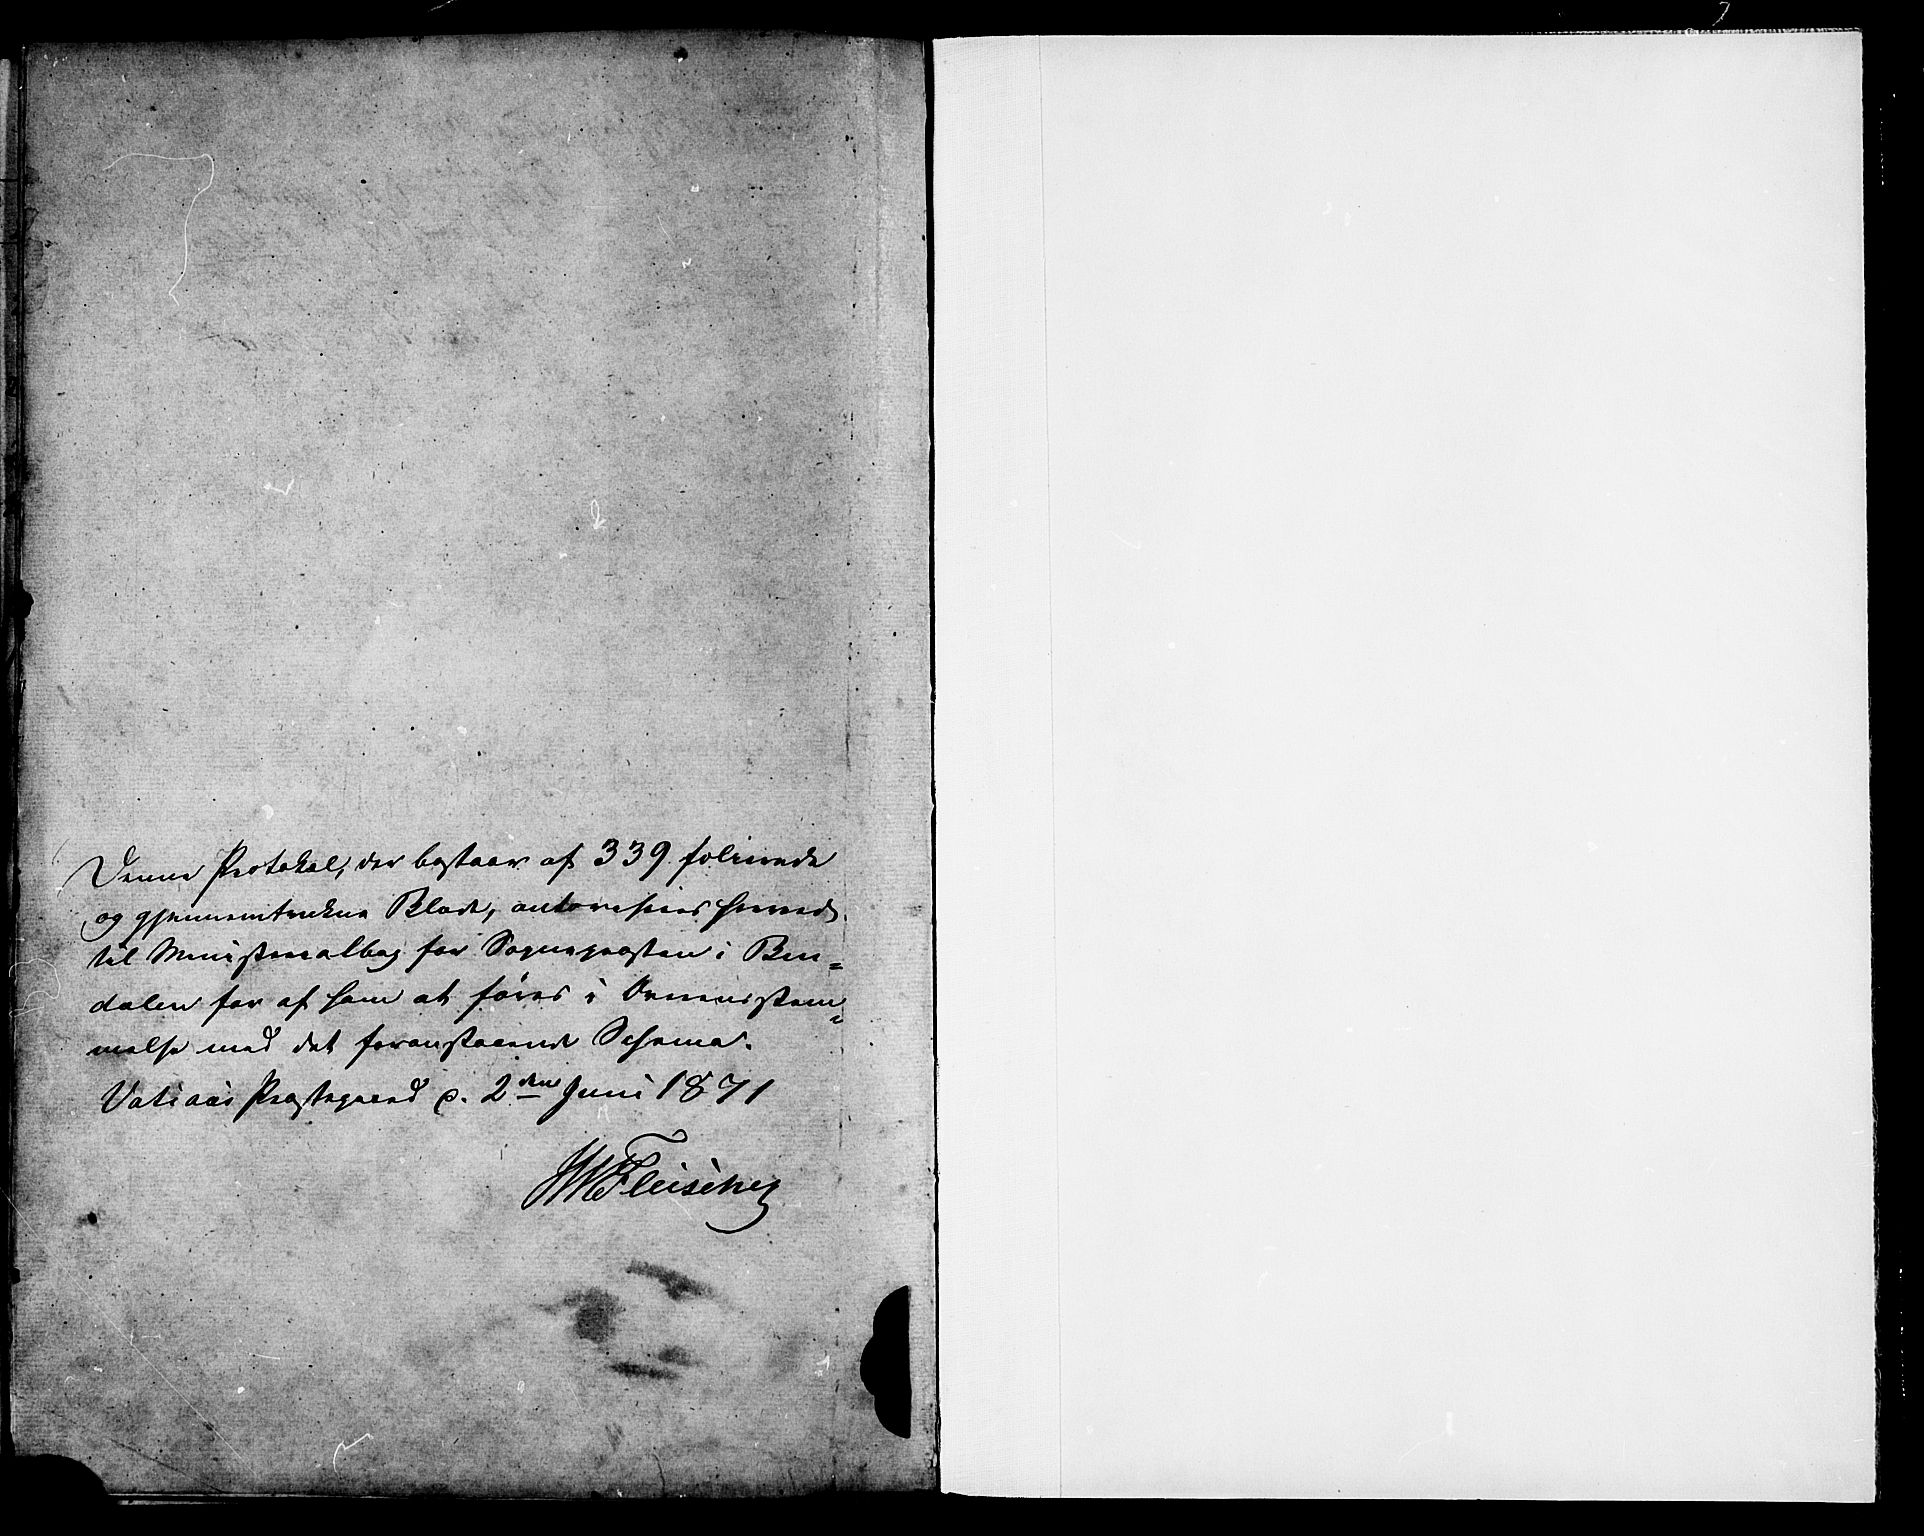 Denne Protokol, der bestaar af 339 folierede
og gjennemtrukne Blade, autoriseres herved
til Ministerialbog for Sognepræsten i Bin=
dalen for af ham at føres i Overensstem=
melse med det foranstaaende Schema.
Præstegaard d. 2den Juni 1871
Fleischer